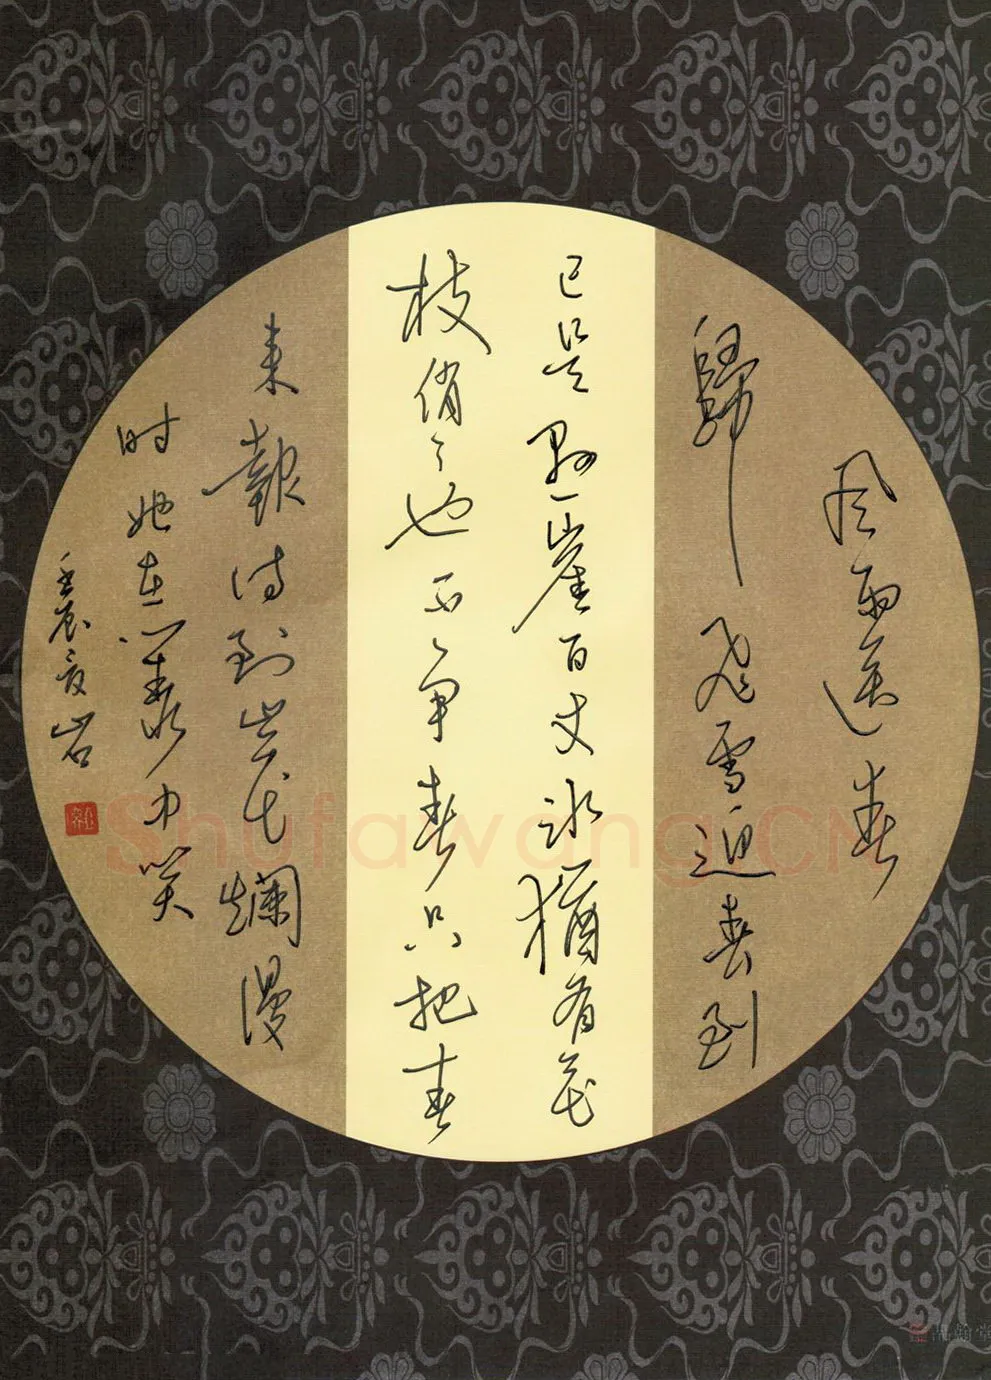 风雨送春
歸飛雪迎春到
已是懸崖百丈冰猶有花
枝俏〻也不争春只把春
来報待到山花爛漫
时她在叢中笑
壬辰夏岩
Shufawang.CN